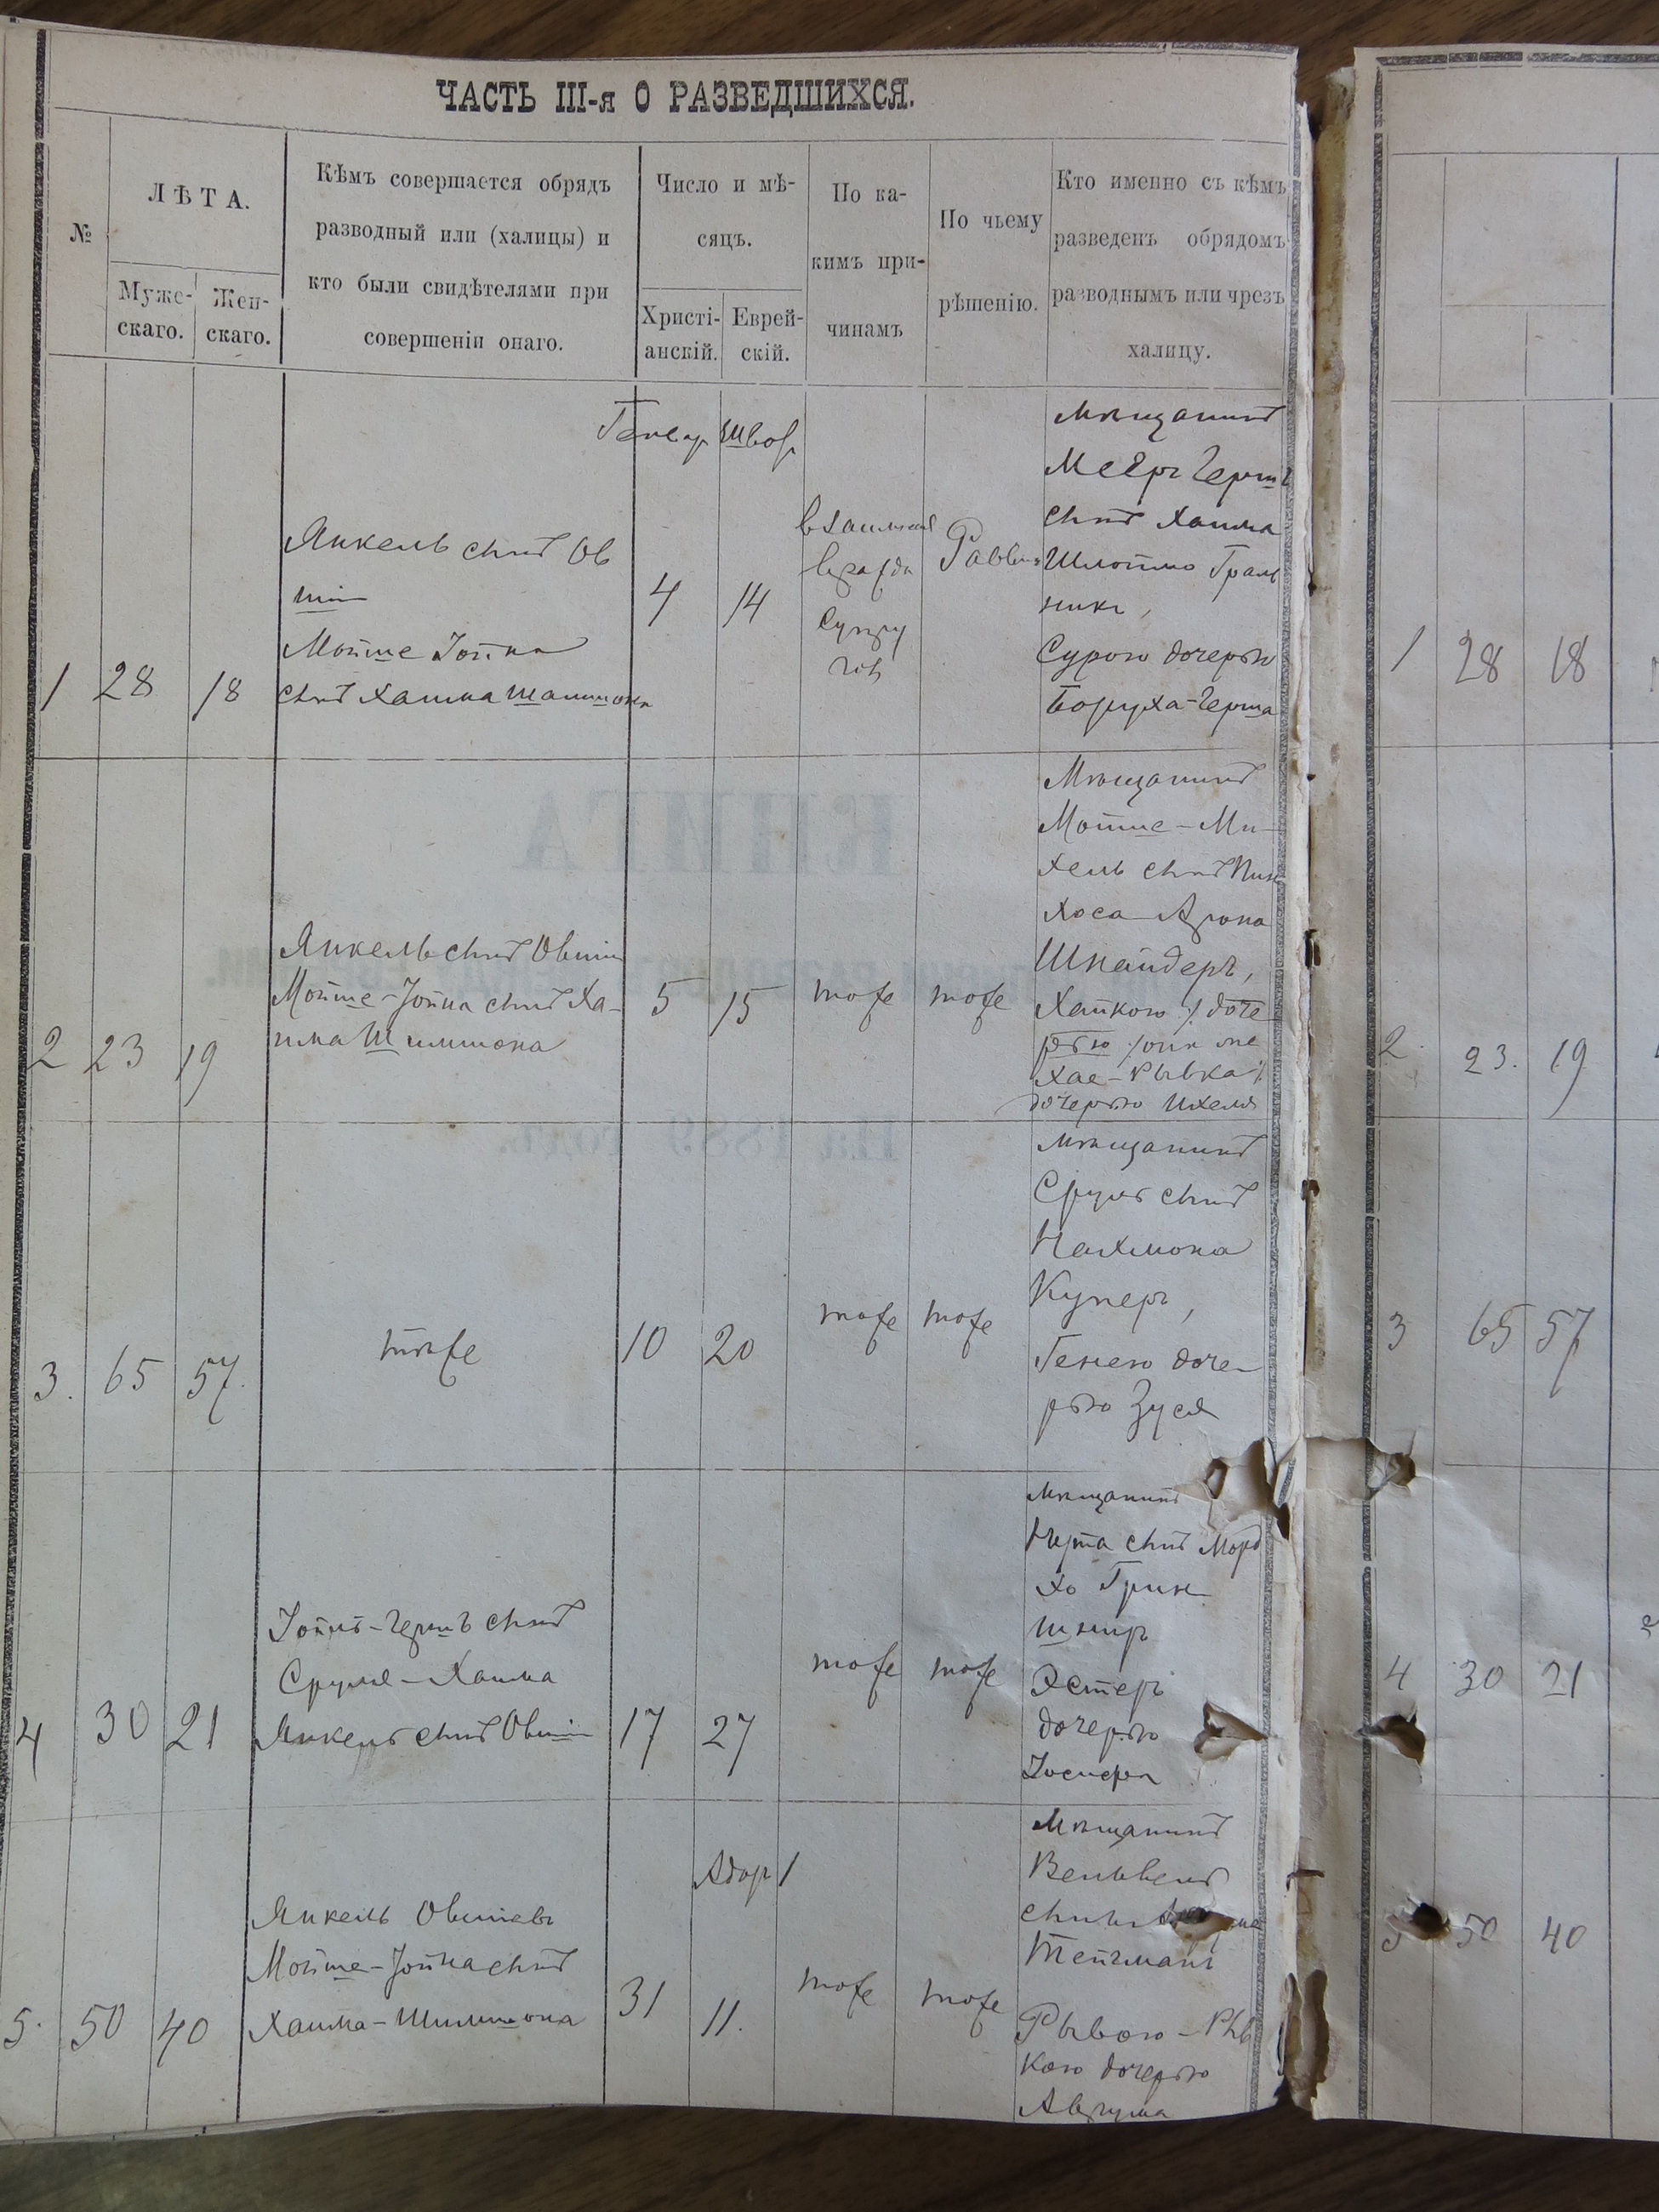 ЧАСТЬ III-я О РАЗВЕДШИХСЯ.
№
ЛѢТА.
Муже-
скаго.
Жен-
скаго.
Кѣмъ совершается обрядъ
разводный или (халицы) и
кто были свидѣтелями при
совершеніи онаго.
Число и мѣ-
сяцъ.
Христі-
анскій.
Еврей-
скій.
По ка-
кимъ при-
чинамъ
По чьему
рѣшенію.
Кто именно съ кѣмъ
разведенъ обрядомъ
разводнымъ или чрезъ
халицу.
Генвар
1
28
18
Янкель сынъ Ов
шія
Мойше Іойна
сынъ Хаима
4
14
взаимная
вражда
супру
говъ
Раввина
мѣщанинъ
Мееръ Герша
сынъ Хаима
Сурою дочерью
Боруха-Герша
2
23
19
Янкель сынъ Овшія
Мойше-Іойна сынъ Ха-
има Шимшона
5
15
тоже
тоже
Мѣщанинъ
Мойше-Ми-
хель сынъ Пин
хоса Арона
Шнайдеръ,
Хайкою /. доче
рью / она же
Хае-Рывка /.
дочерью Ихеля
3.
65
57.
тѣже
10
20
тоже
тоже
мѣщанинъ
Сруль сынъ
Нахмона
Куперъ,
Генею доче-
рью Зуся
4
30
21
Іойнъ-Гершъ сынъ
Сруля-Хаима
Янкель сынъ Овшія
17
27
тоже
тоже
мѣщанинъ
Нута сынъ Морд
хо Грин
шпиръ
Эстеръ
дочерью
Іосифа
5.
50
40
Янкель Овшіевъ
Мойше-Іойна сынъ
Хаима-Шимшона
31
Адаръ 1
11.
тоже
тоже
Мѣщанинъ
Вельвель
сынъ
Тейчманъ
Рывою-Рыв
кою дочерью
Аврума
1
28
18
2.
23.
19
3
65
57
4
30
21
5
50
40